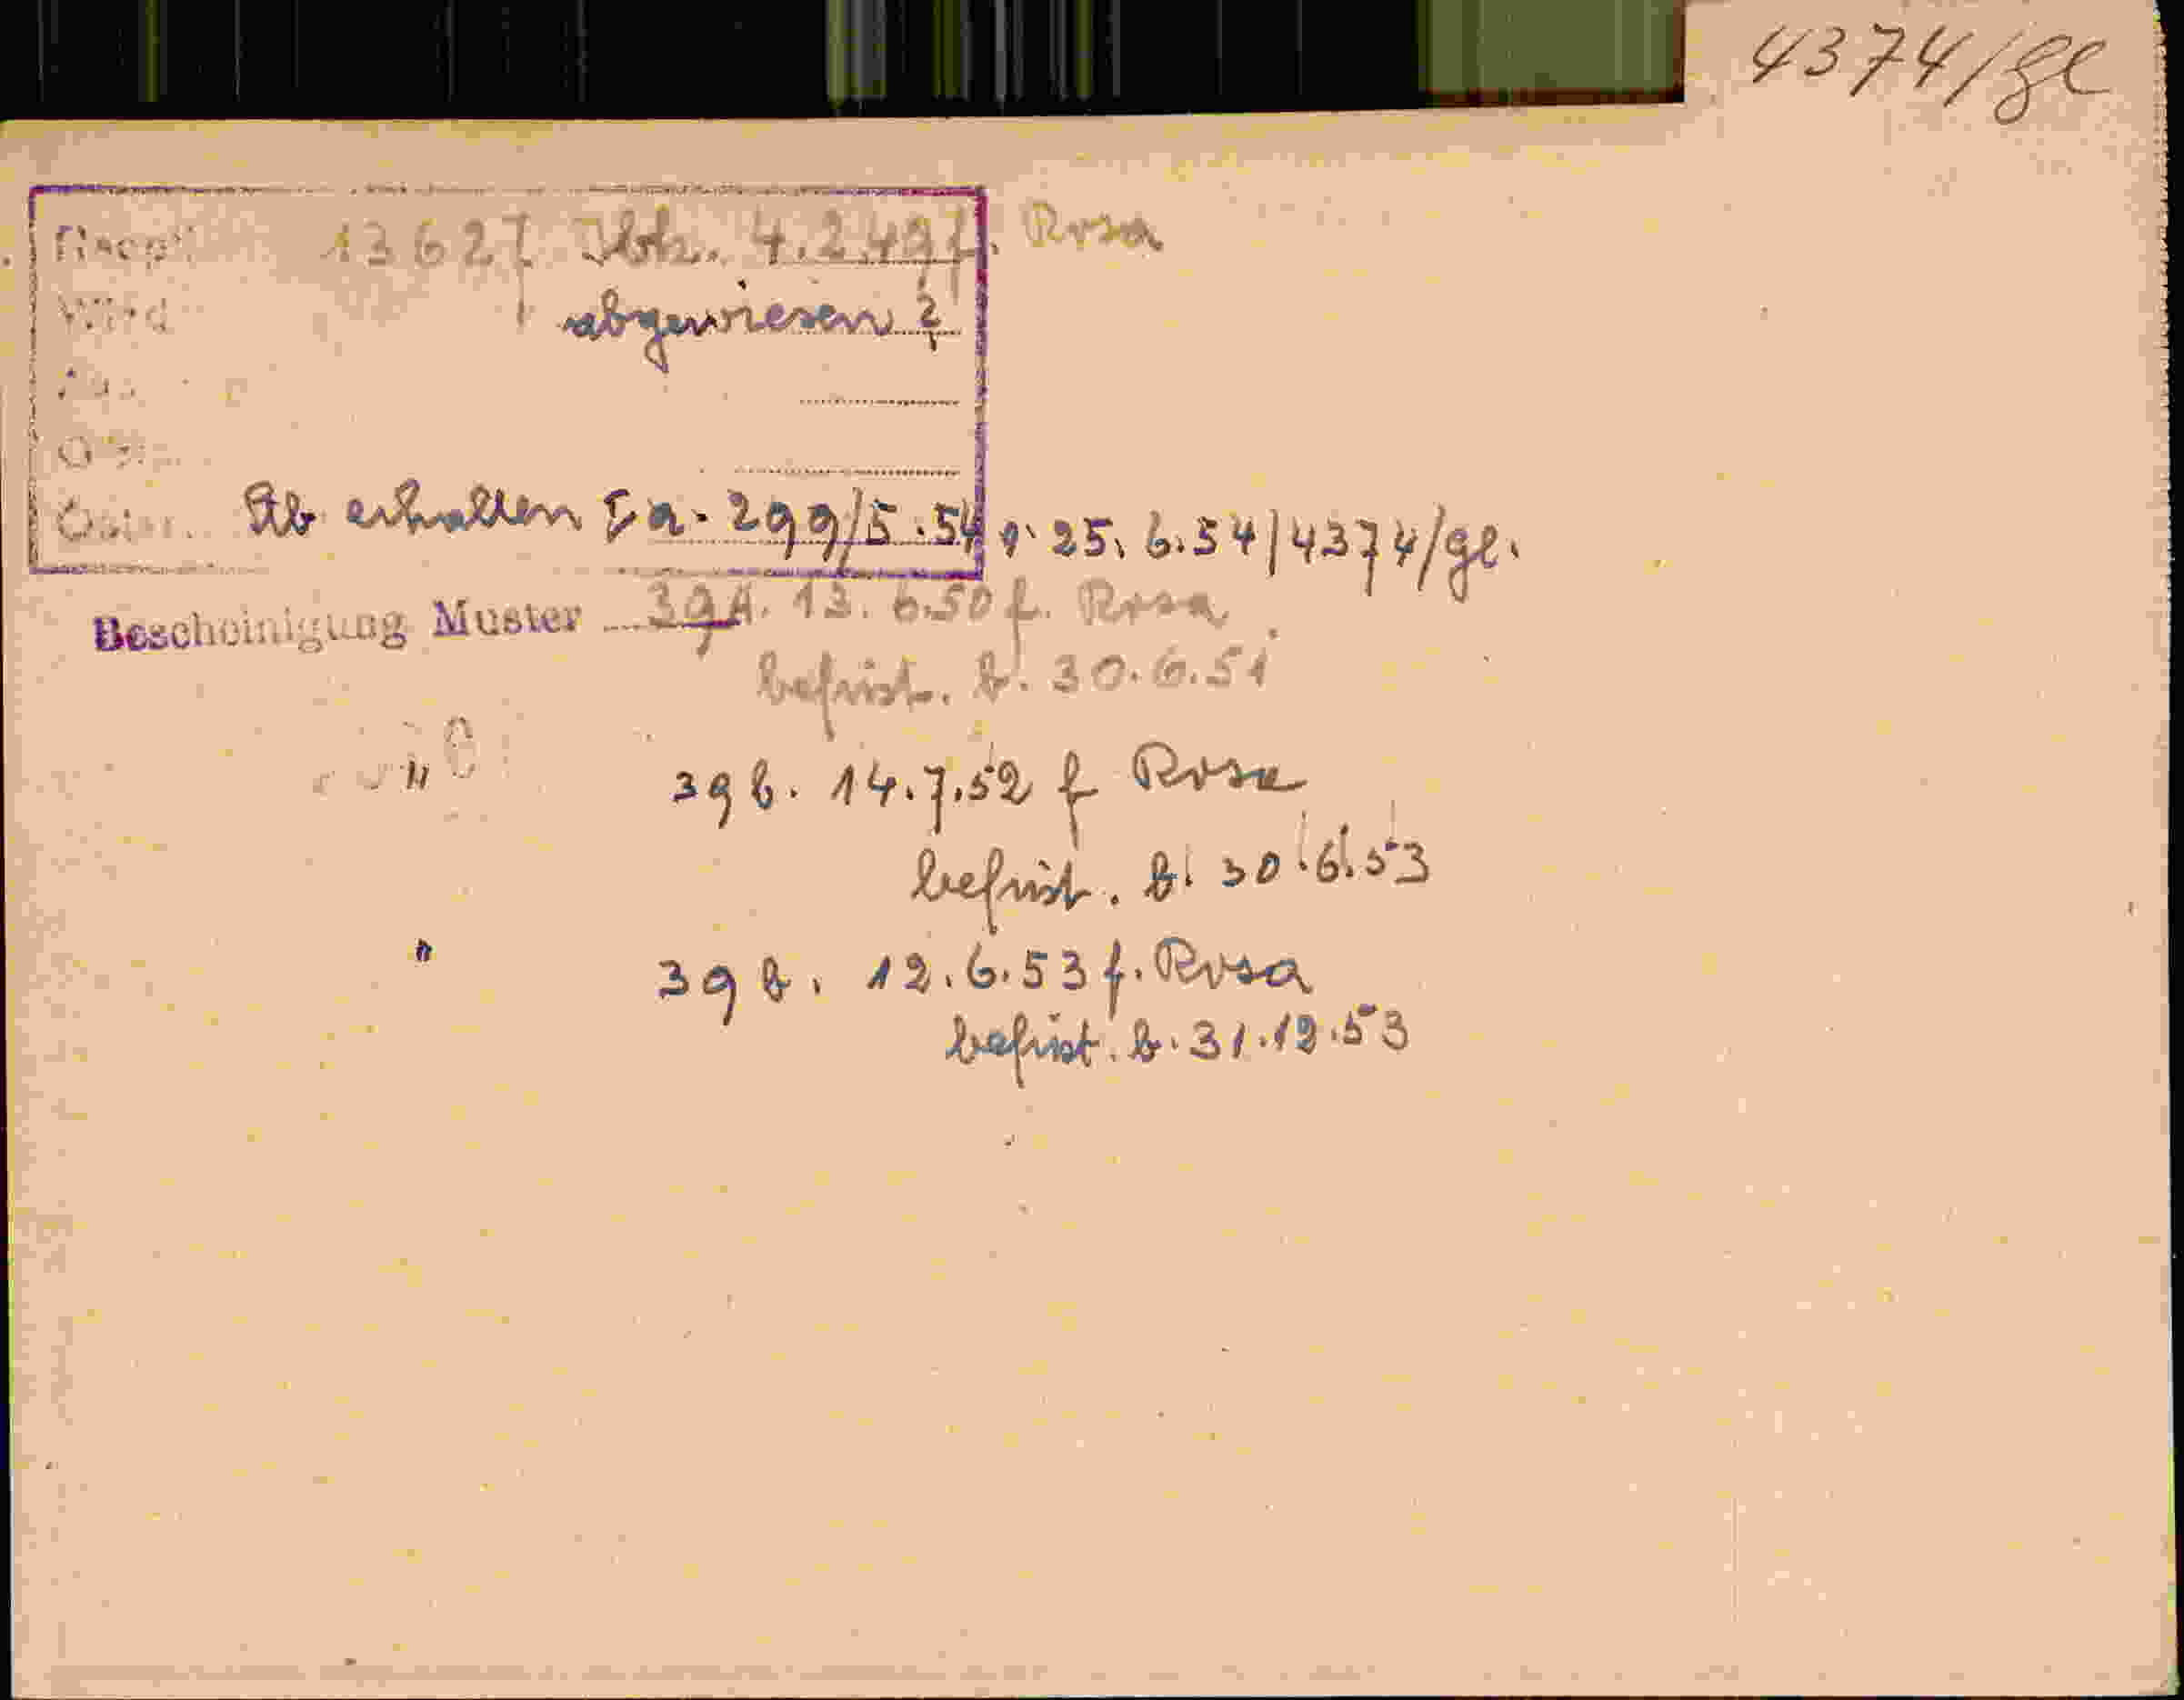 4374/gl
13627 Ibk. 4.2.49 f. Rosa
abgewiesen ?
Stb erhalten I a. 299/5.54 v. 25. 6.54/4374/gl.
Bescheinigung Muster 39A. 13. 6.50 f. Rosa
befrist. b. 30.6.51
" 39 b. 14.7.52 f Rosa
befrist. b. 30.6.53
" 39 b. 12.6.53 f. Rosa
befrist. b. 31.12.53